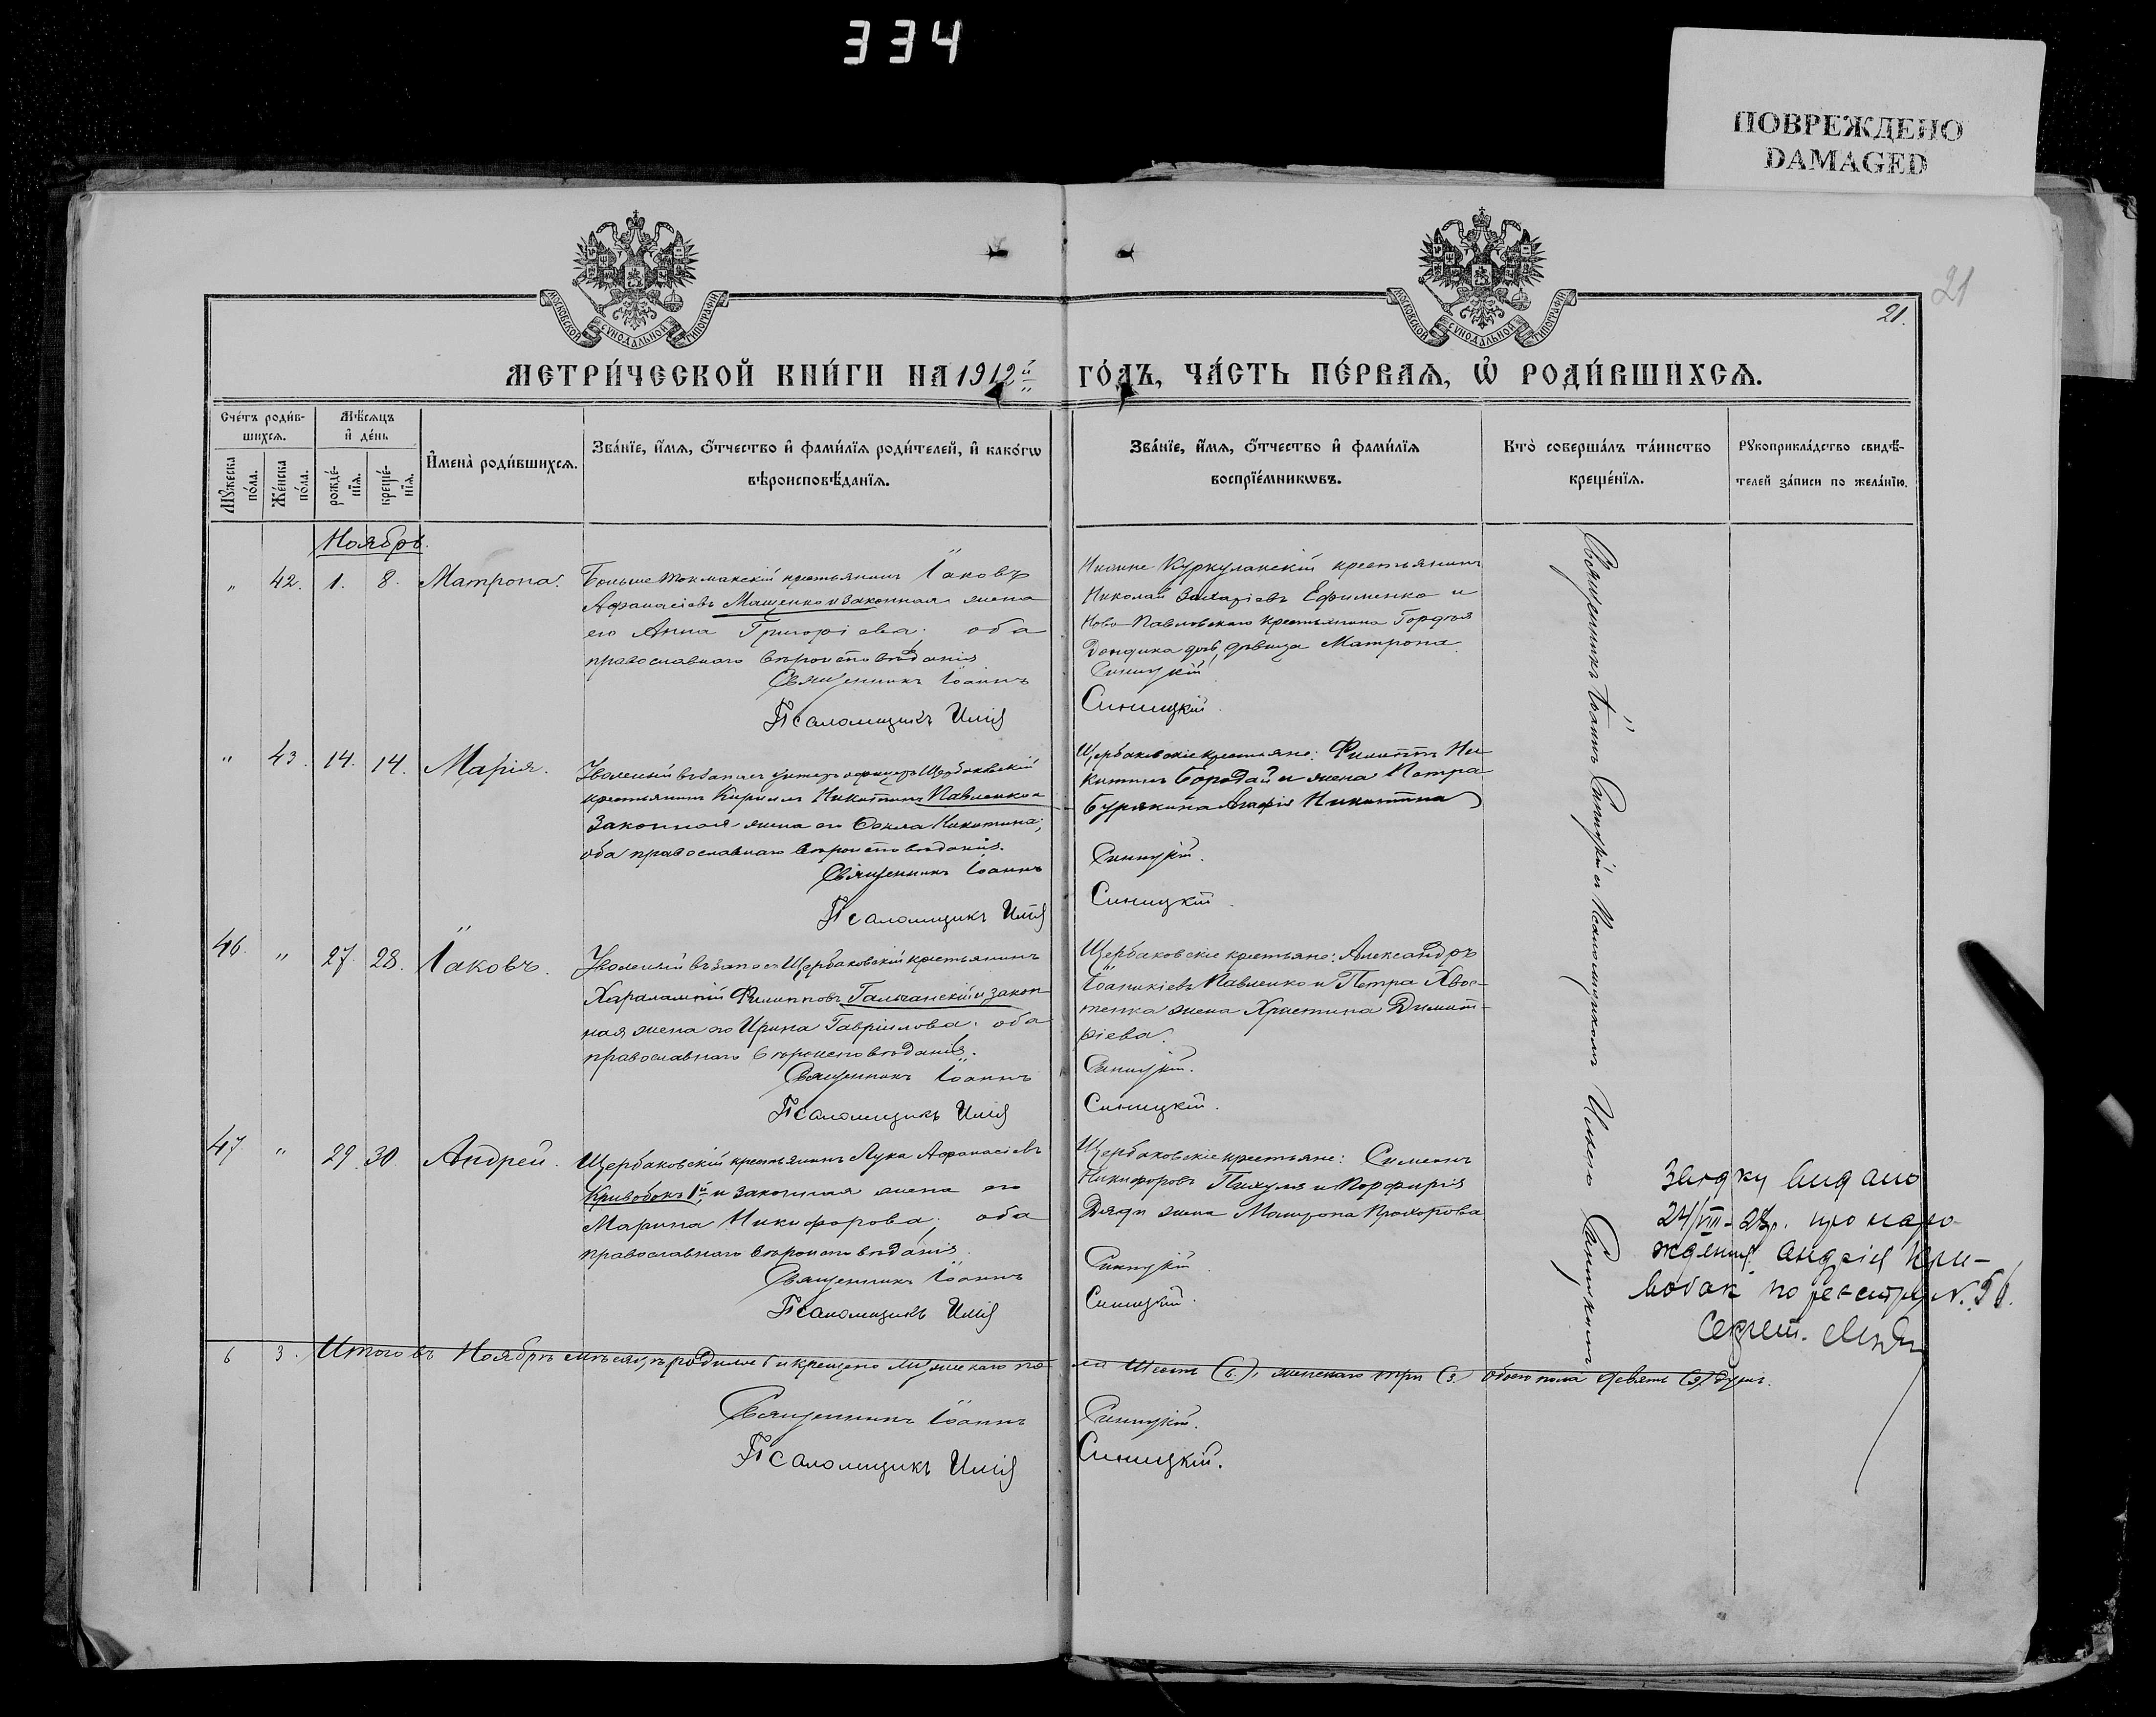 334
ПОВРЕЖДЕНО
DAMAGED
МОСКОВСКОЙ СѴНОДАЛЬНОЙ ТИПОГРАФІИ
МОСКОВСКОЙ СѴНОДАЛЬНОЙ ТИПОГРАФІИ
21
21.
МЕТРИ́ЧЕСКОЙ КНИ́ГИ НА 1912й ГО́ДЪ, ЧА́СТЬ ПЕ́РВАЯ, Ѡ҆ РОДИ́ВШИХСЯ.
Сче́тъ роди́в-
шихся.
Мѣ́сяцъ
и҆ де́нь
Мꙋ́жеска
по́ла.
Же́нска
по́ла.
рожде́-
нїя.
креще́-
нїя.
И҆мена̀ роди́вшихся.
Зва́нїе, и҆́мя, ѻ҆́тчество и҆ фами́лїя роди́телей, и҆ како́гѡ
вѣроисповѣ́данїя.
Зва́нїе, и҆́мя, ѻ҆́тчество и҆ фами́лїя
воспрїе́мникѡвъ.
Кто̀ соверша́лъ та́инство
креще́нїя.
Рꙋкоприкла́дство свидѣ́-
телей за́писи по жела́нїю.
Ноябрь.
" 42. 1. 8. Матрона.
Больше Токмакскій крестьянинъ Іаковъ
Аѳанасіевъ Мащенко и законная жена
его Анна Григоріева; оба
православнаго вѣроисповѣданія
Священникъ Іоаннъ
Псаломщикъ Илія
Нижне Куркулакскій крестьянинъ
Николай Захаріевъ Ефименко и
Ново-Павловскаго крестьянина Гордѣя
дѣвица Матрона.
Синицкій
Синицкій.
" 43. 14. 14. Марія.
Уволеный въ запасъ унтеръ офицеръ Щербаковскій
крестьянинъ Кириллъ Никитинъ Павленко и
законная жена его Ѳекла Никитина;
оба православнаго вѣроисповѣданія.
Священникъ Іоаннъ
Псаломщикъ Илія
Щербаковскіе крестьяне: Филиппъ Ни-
китинъ Бородай и жена Петра
Бурякина Агафія Никитина
Синицкій.
Синицкій.
46. " 27. 28. Іаковъ.
Уволеный въ запасъ Щербаковскій крестьянинъ
Харалампій Филипповъ Гальчанскій и закон-
ная жена его Ирина Гавріилова; оба
православнаго вѣроисповѣданія.
Священникъ Іоаннъ
Псаломщикъ Илія
Щербаковскіе крестьяне: Александръ
Іоанникіевъ Павленко и Петра Хвос-
тенка жена Христина Димит-
ріева.
Синицкій.
Синицкій.
47. " 29. 30. Андрей.
Щербаковскій крестьянинъ Лука Аѳанасіевъ
Кривобокъ 1й и законная жена его
Марина Никифорова; оба
православнаго вѣроисповѣданія.
Священникъ Іоаннъ
Псаломщикъ Илія
Щербаковскіе крестьяне: Симеонъ
Никифоровъ Пихуля и Порфирія
Дяди жена Матрона Прохорова
Синицкій
Синицкій.
Священникъ Іоаннъ Синицкій съ Псаломщикомъ Иліею Синицкимъ
видано
24/VIII-28р. про наро-
ждення Андрія Кри-
вобок по реєстру N. 56.
Секрет.
6 3. Итого въ Ноябрѣ мѣсяцѣ родилось и крещено мужескаго по- ла шесть (6.), женскаго три (3.) обоего пола девять (9) душъ.
Священникъ Іоаннъ Синицкій.
Псаломщикъ Илія Синицкій.